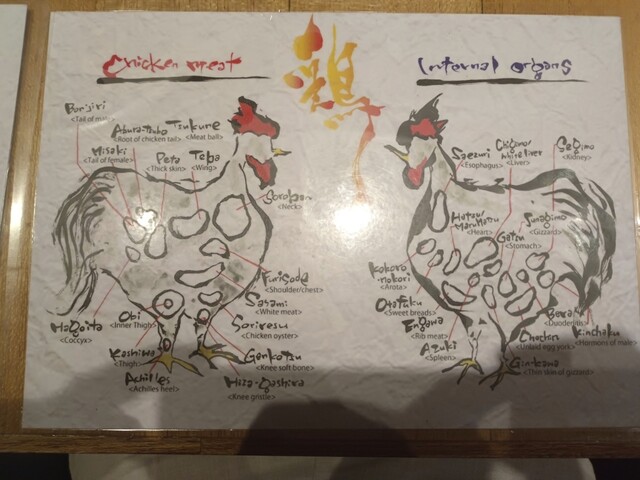 Chicken meat
鶏
Internal organs
Bonjiri
<Tail of male>
Abura-Tsubo
<Root of chicken tail>
Tsukune
<Meat ball>
Misaki
<Tail of female>
Peta
<Thick skin>
Teba
<Wing>
Soroban
<Neck>
Furisode
<Shoulder/chest>
Sasami
<White meat>
Soriresu
<Chicken oyster>
Gankotsu
<Knee soft bone>
Hiza-Gashira
<Knee gristle>
Hagoita
<Coccyx>
Obi
<Inner Thigh>
Kashiwa
<Thigh>
Achilles
<Achilles heel>
Saezuri
<Esophagus>
white liver
<Liver>
Segimo
<Kidney>
Hatsu/
Maruhatsu
<Heart>
Gatsu
<Stomach>
Sunagimo
<Gizzard>
Kokoro
nokori
<Arota>
Otafuku
<Sweet breads>
Engawa
<Rib meat>
Azuki
<Spleen>
Bera
<Duodenum>
Kinchaku
<Hormons of male>
Chochin
<Unlaid egg york>
Gin-kawa
<Thin skin of gizzard>